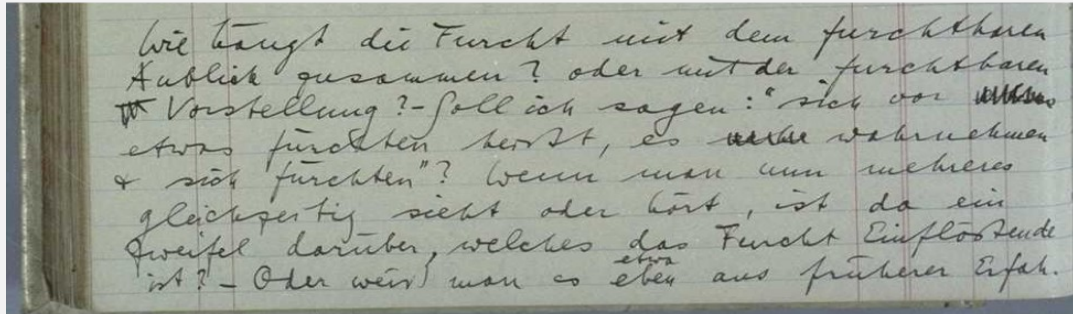 Wie hängt die Furcht mit dem furchtbaren
Anblick zusammen? oder mit der furchtbaren
Vorstellung? – Soll ich sagen: "sich vor
etwas fürchten heißt, es wahrnehmen
& sich fürchten"? Wenn man nun mehreres
gleichzeitig sieht oder hört, ist da ein
Zweifel darüber, welches das Furcht Einflößende
ist? – Oder weiß man es etwa eben aus früherer Erfah-